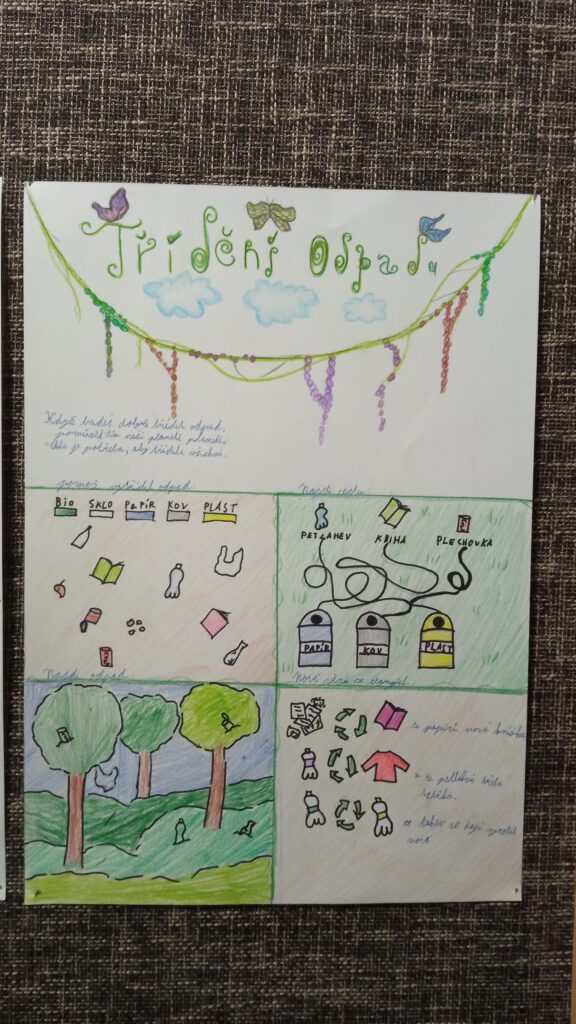 Třídění Odpadu
Když budeš dobře třídit odpad,
pomůžeš tím naší planetě
ale je potřeba, aby třídili všichni.
pomoz vytřídit odpad:
BIO SKLO PAPÍR KOV PLAST
Najdi cestu:
PETLAHEV KNIHA PLECHOVKA
PAPÍR KOV PLAST
Najdi odpad
Nové věci ze starých:
z papírů nové
z petlahví
se dají vyrobit
nové